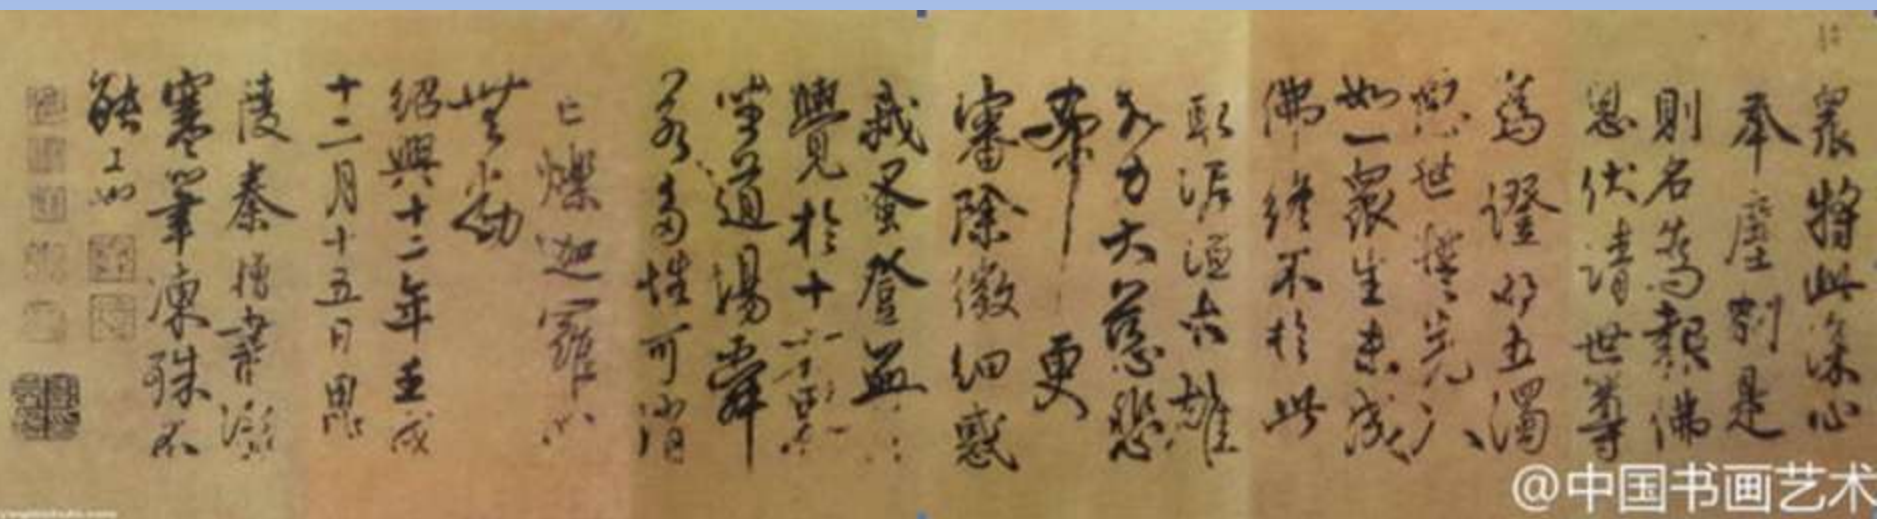 眾將此深心
奉塵剎是
則名為報佛
恩伏請世尊
為證明五濁
惡世誓先入
如一眾生未成
佛終不於此
取泥洹大雄
大力大慈悲
希更
審除微細惑
我蚤登無上
覺於十方界
坐道場舜
若多性可消
亡爍迦羅心
無動
紹興十二年壬戌
十二月十五日思
陵秦僧書
寒筆凍殊不
能工也
@中国书画艺术